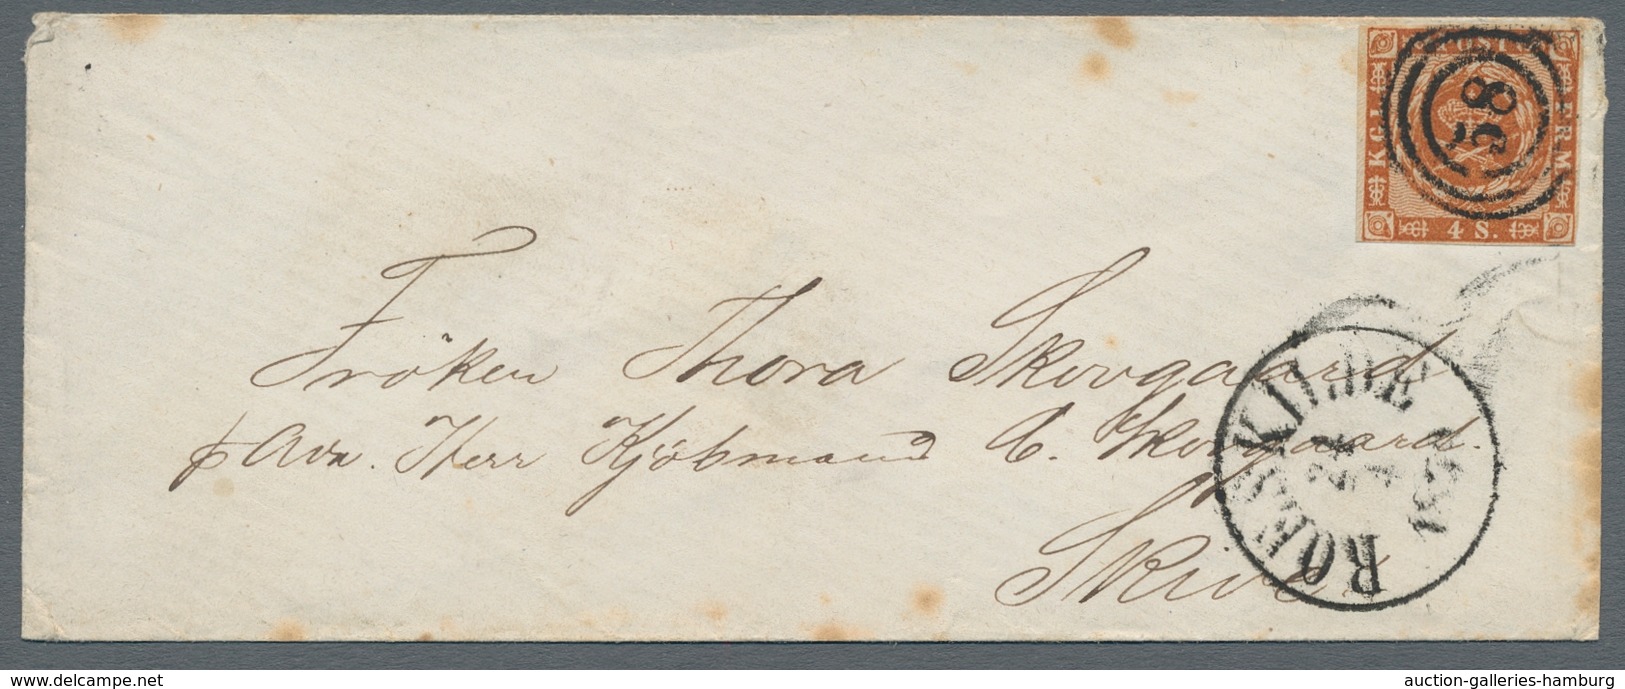 KGL POST FRM
4 S.
58
Fröken Thora Skovgaard
p Adr. Herr Kjöbmand C. Skovgaard.
Skive
ROESKILDE
www.delcampe.net
auction-galleries-hamburg